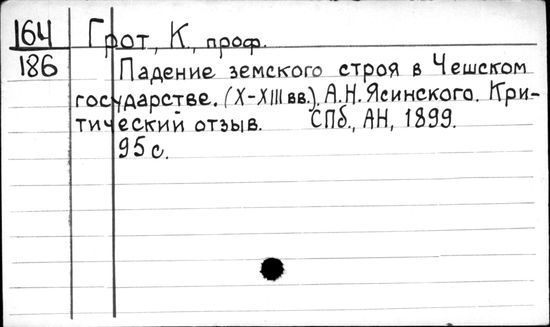 164 Грот, К., проф.
186 Падение земского строя в Чешском
государстве. (X-XIII вв.). А.Н. Ясинского. Кри-
тический отзыв. СПб., АН, 1899.
95 с.